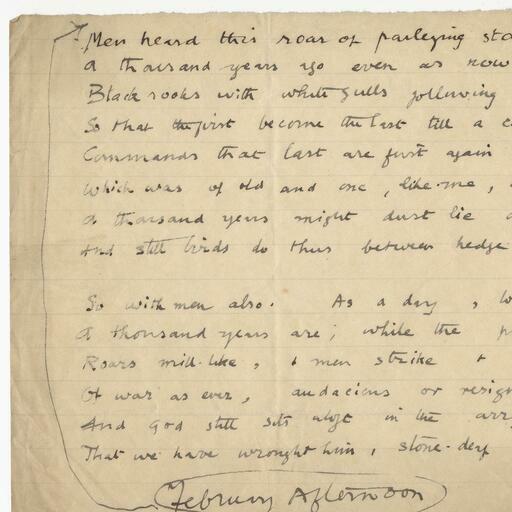 Men heard this roar of parleying sta
A thousand years ago even as now
Black rooks with white gulls following
So that the first become the last till a c
Commands that last are first again
Which was of old and one, like me,
A thousand years might dust lie
And still birds do thus between hedge
So with men also. As a day,
A thousand years are; while the
Roars mill-like, & men strike &
Of war as ever, audacious or resign
And God still sits aloft in the arr
That we have wrought him, stone-deaf
February Afternoon